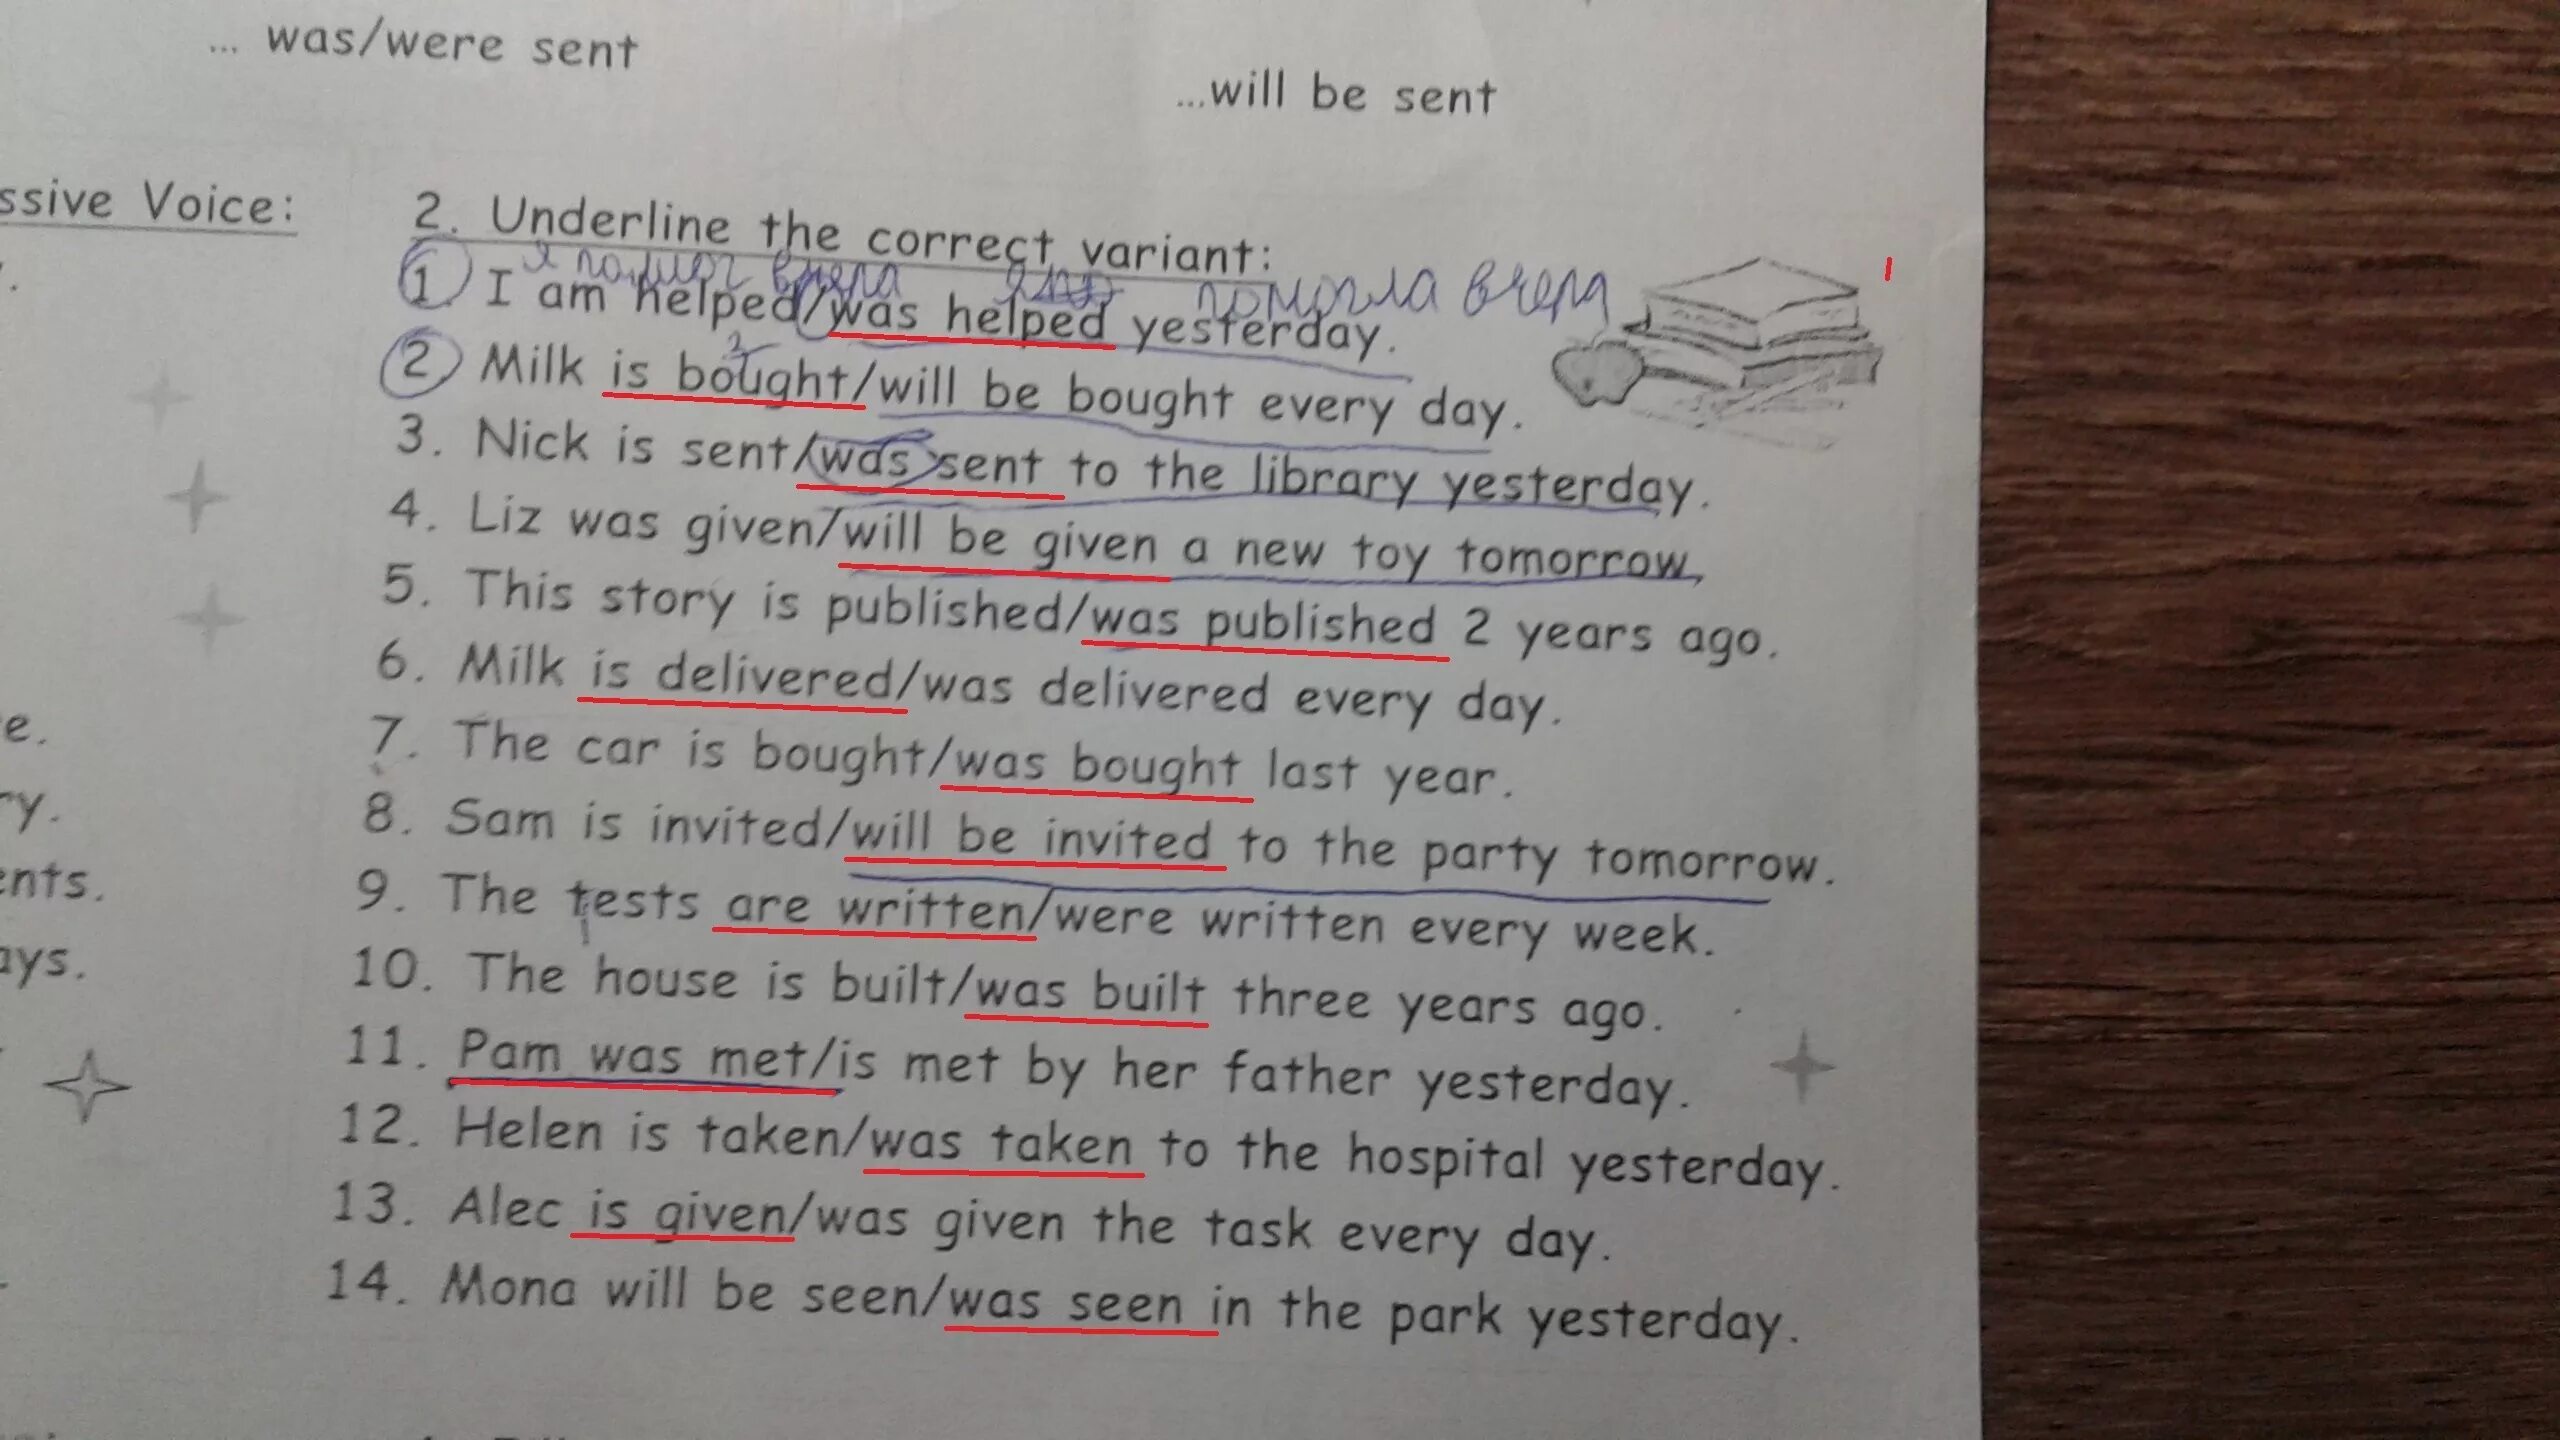 ... was/were sent
...will be sent
ssive Voice:
2. Underline the correct variant:
я помог вчера помогла вчера
1 I am helped/was helped yesterday.
2 Milk is bought/will be bought every day.
3. Nick is sent/was sent to the library yesterday.
4. Liz was given/will be given a new toy tomorrow,
5. This story is published/was published 2 years ago.
6. Milk is delivered/was delivered every day.
e.
7. The car is bought/was bought last year.
ry.
8. Sam is invited/will be invited to the party tomorrow.
ents.
9. The tests are written/were written every week.
ays.
10. The house is built/was built three years ago.
11. Pam was met/is met by her father yesterday.
12. Helen is taken/was taken to the hospital yesterday.
13. Alec is given/was given the task every day.
14. Mona will be seen/was seen in the park yesterday.